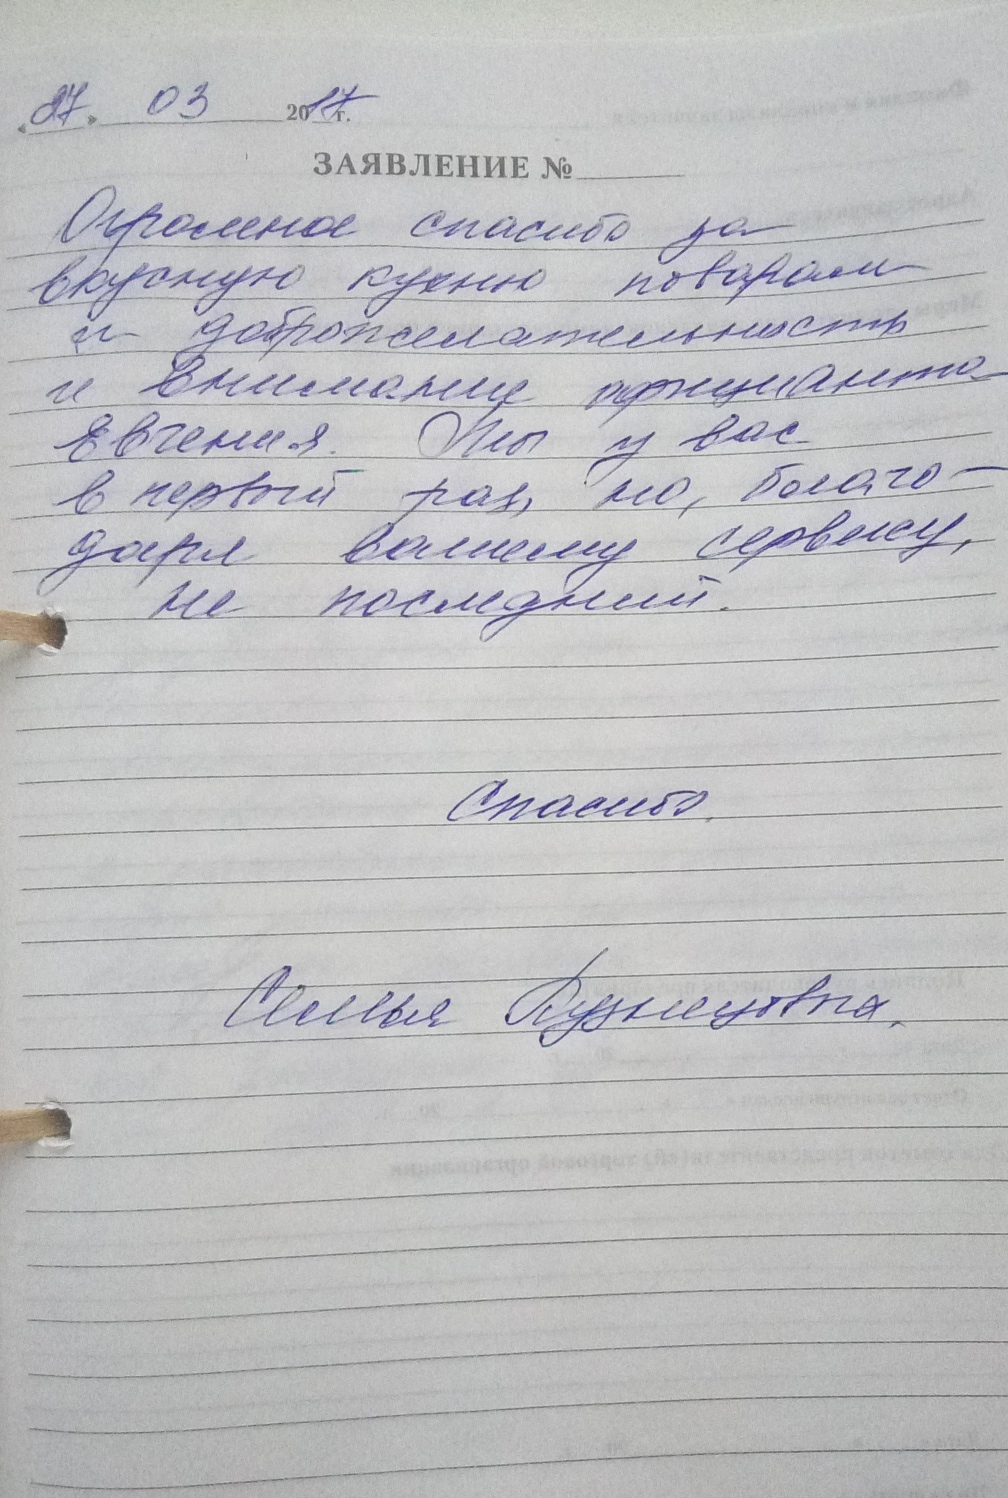 «27» 03 2017г.
ЗАЯВЛЕНИЕ №
Огромное спасибо за
вкусную кухню поварам
и доброжелательность
и внимание официанта
Евгения. Мы у вас
в первый раз, но, благо-
даря вашему сервису,
не последний.
Спасибо.
Семья Кузнецовых.